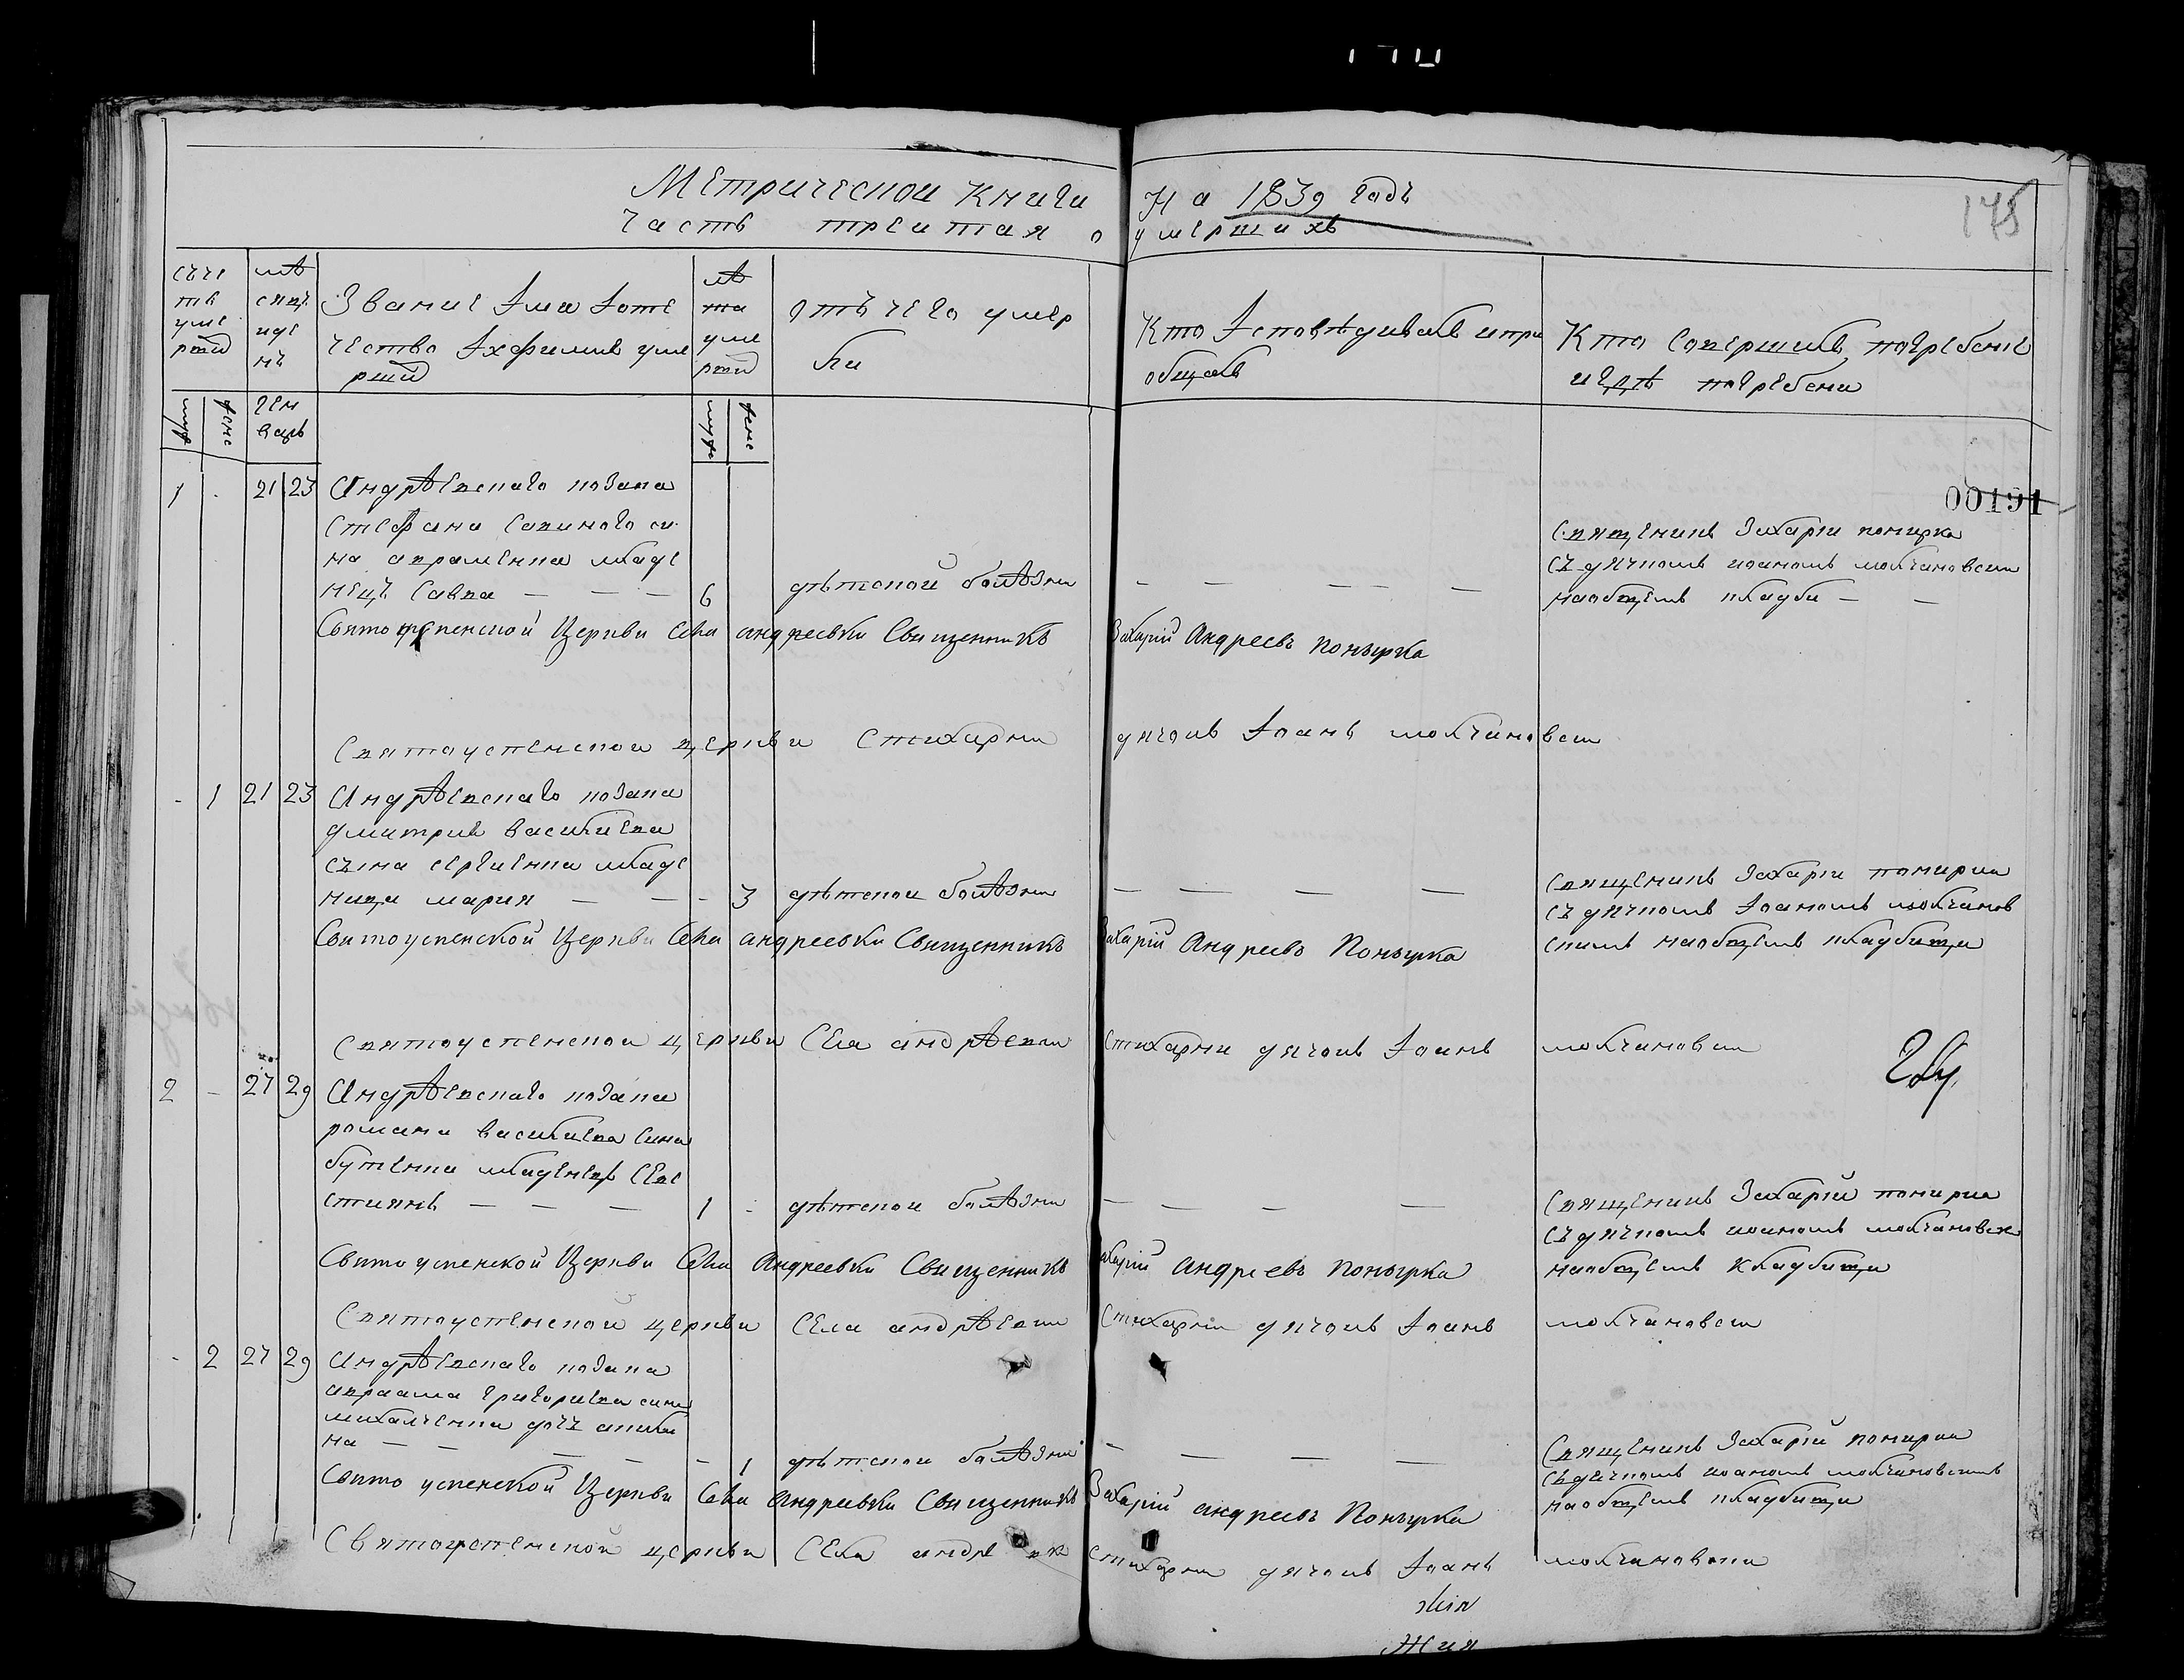 Метрическои книги на 1839 годъ
175
часть треитая о умершихъ
счч
тъ
уме
ршй
мѣ
сяцъ
иде
нъ
Звание Iмя Iоте
чество Iхфимия уме
ршй
лѣ
та
уме
ршй
отъ чего умер
ли
Кто Iсповѣдивалъ ипри
общалъ
Кто Совершилъ погребение
игдѣ погребени
муж
женс
генварь
муж
женс
1 - 21 23 Андрѣевскаго козака
00191
Стефана Савиного си
на авраменка младе
нецъ Савка — — — 6 дѣтской болѣзни — — — —
Священикъ Захарий понирка
съ дячкомъ иоаномъ молчановски
наобщемъ кладби — —
Святоуспенской Церкви Села андреевки Священникъ Захарий Андреевъ Понырка
Святоуспенскои церкви Стихарни дячокъ Iоанъ молчановски
- 1 21 23 Андрѣевскаго козака
дмитрия василиева
сына сергиенка младе
ница мария — — - 3 дѣтскои болѣзни — — — —
Священикъ Захарий понирка
съ дячкомъ Iоаномъ молчанов
скимъ наобщемъ кладбищи
Святоуспенской Церкви Села андреевки Священникъ Захарий Андреевъ Понырка
Святоуспенскои церкви Села андрѣевки Стихарни дячокъ Iоанъ молчановски
2 - 27 29 Андрѣевскаго козака
романа василиева сина
бутенка младенецъ Сева
стиянъ — — — 1 - дѣтскои болѣзни — — — —
Священикъ Захарий понирка
съ дячкомъ иоаномъ молчановски
наобщемъ кладбищи
Святоуспенской Церкви Села Андреевки Священникъ Захарий Андреевъ Понырка
Святоуспенской церкви Села андрѣевки Стихарни дячокъ Iоанъ молчановски
- 2 27 29 Андрѣевскаго козака
авраама григориева сина
михалченка дочъ акили
на — — — — - 1 дѣтскои болѣзни — — — —
Священикъ Захарий понирка
съ дячкомъ иоаномъ молчановскимъ
наобщемъ кладбищи
Свято успенской Церкви Села Андреевки Священникъ Захарий андреевъ Понырка
Святоуспенской церкви Села андре вк Стихарни дячокъ Iоанъ молчановски